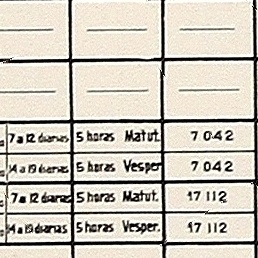 7 a 12 diarias 5 horas Matut. 7 042
14 a 19 diarias 5 horas Vesper 7 042
7 a 12 diarias 5 horas Matut. 17 112
14 a 19 diarias 5 horas Vesper. 17 112